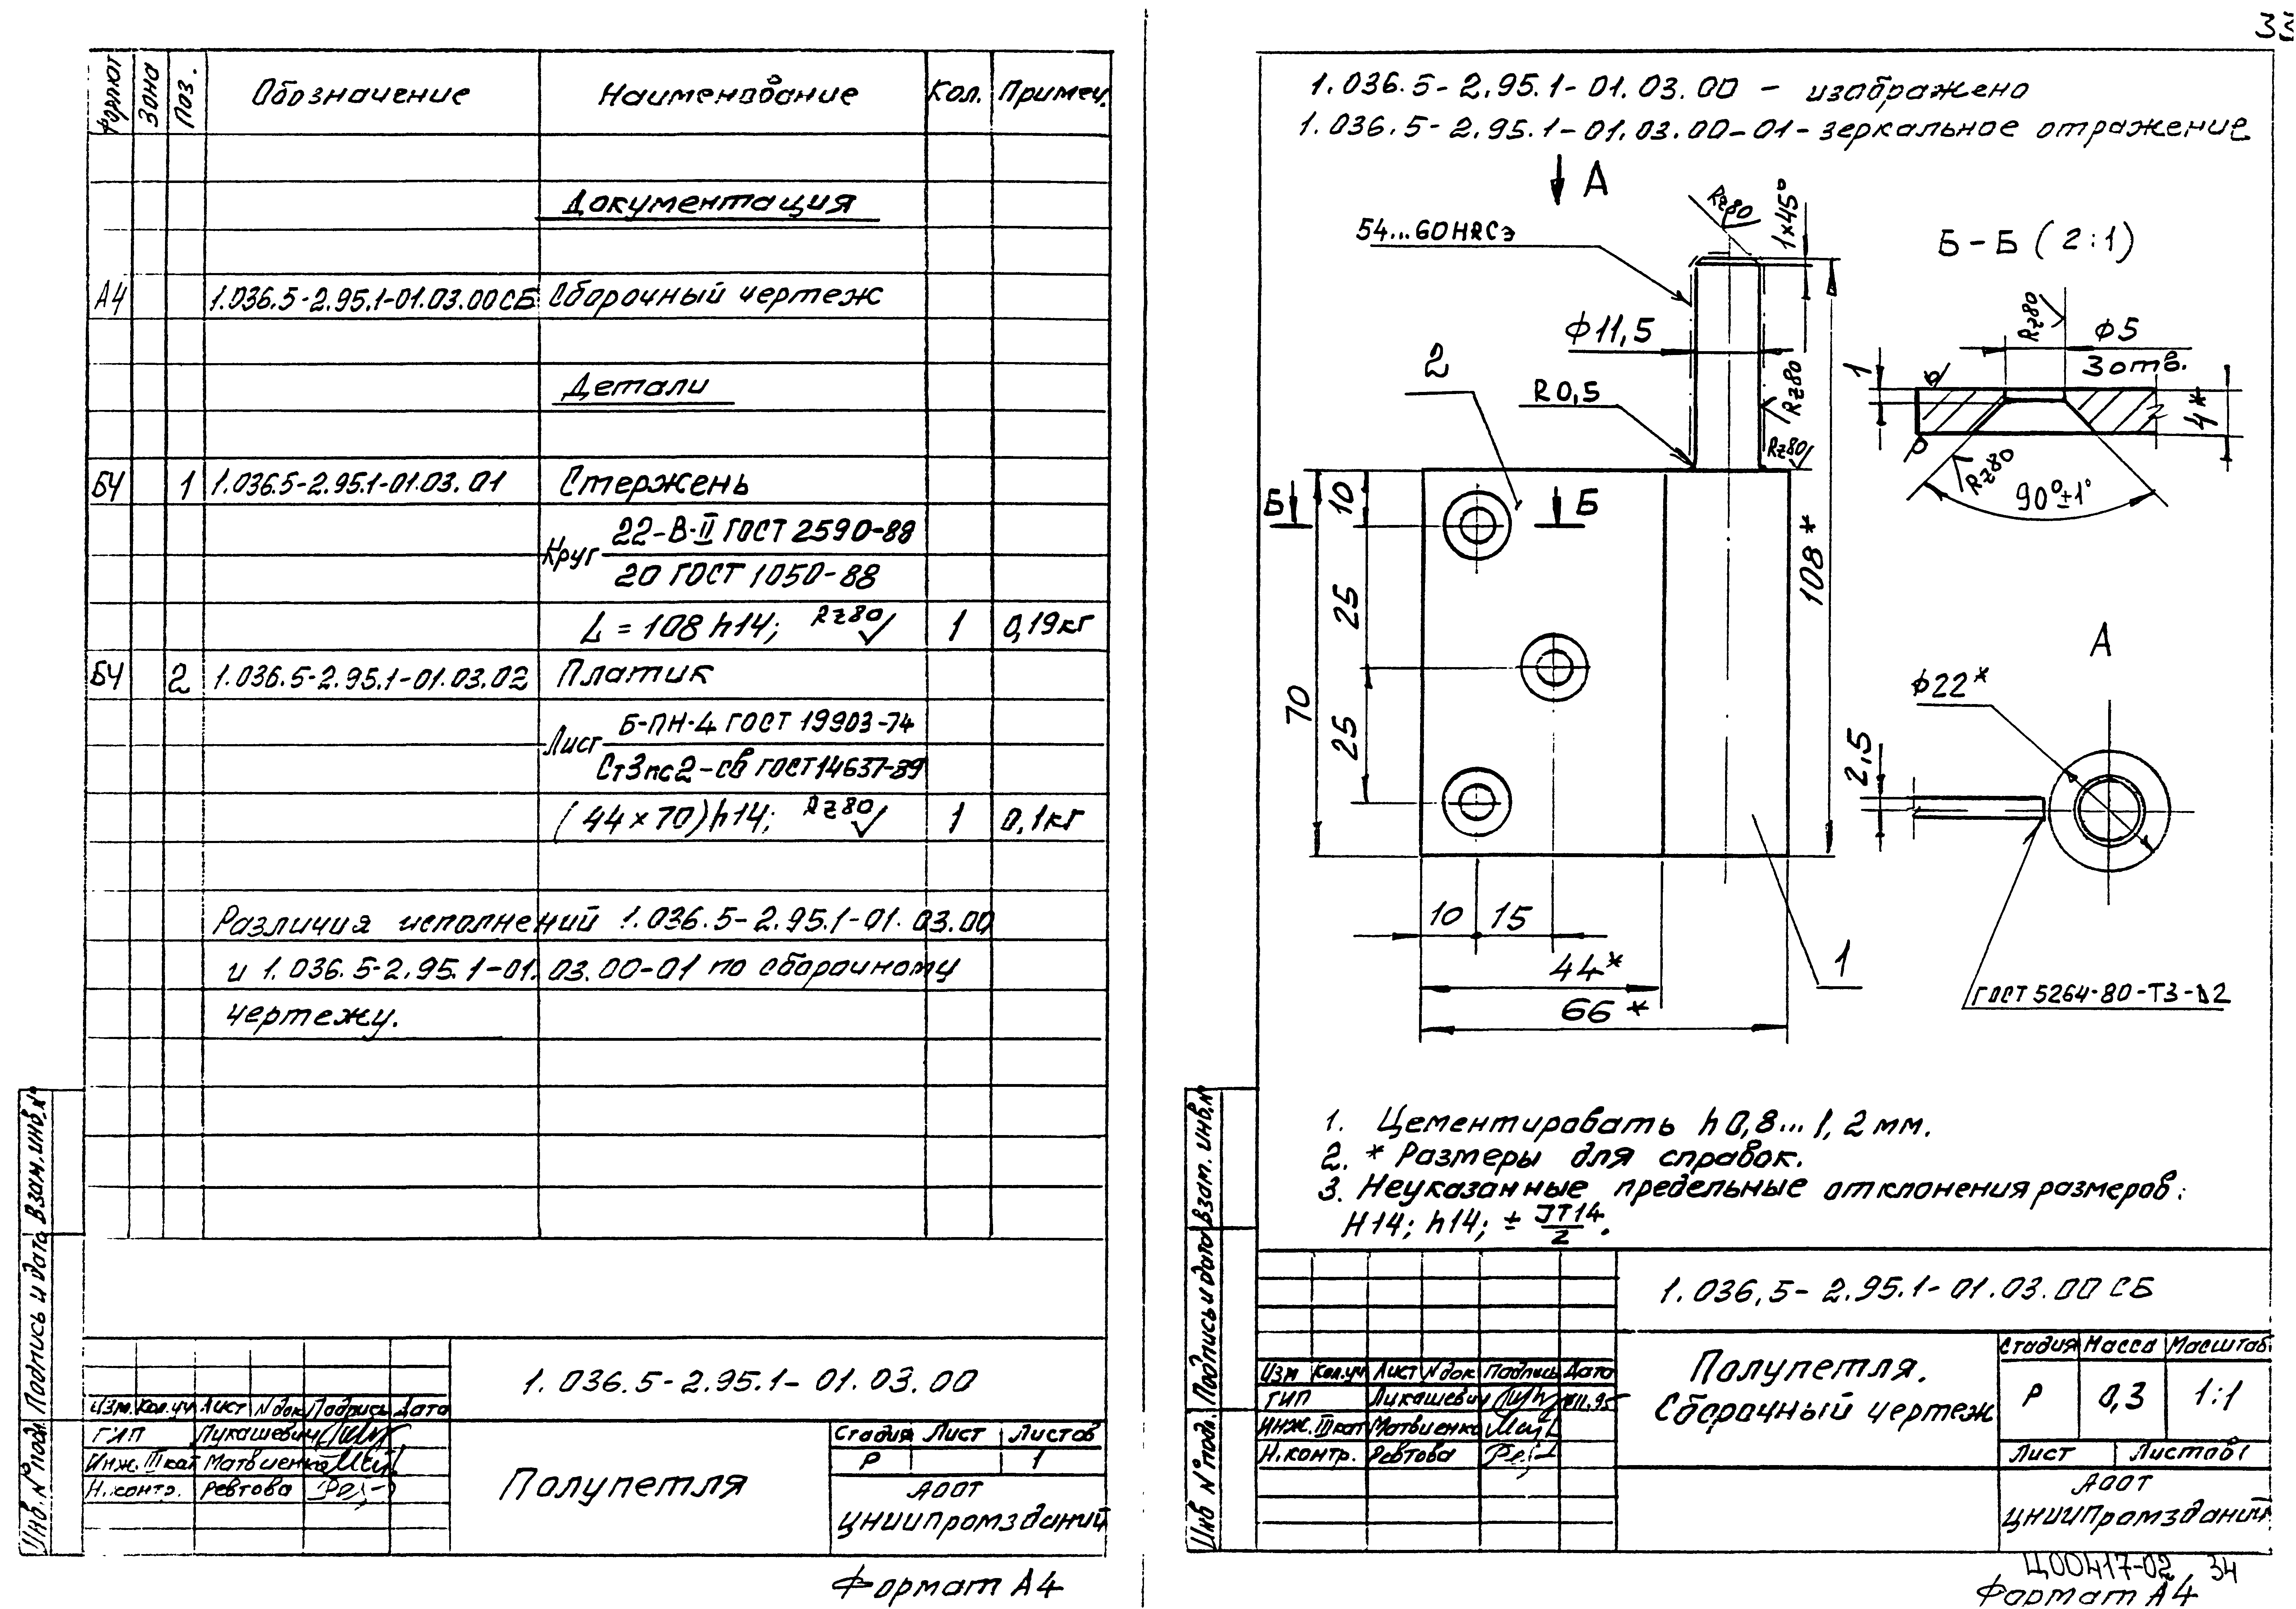 33
Формат
Зона
Поз.
Обозначение
Наименование
Кол.
Примеч.
Документация
А4 1.036.5-2.95.1-01.03.00СБ Сборочный чертеж
Детали
БЧ 1 1.036.5-2.95.1-01.03.01 Стержень
Круг 22-В-II ГОСТ 2590-88
20 ГОСТ 1050-88
L = 108 h14; Rz80 1 0,19кг
БЧ 2 1.036.5-2.95.1-01.03.02 Платик
Лист Б-ПН-4 ГОСТ 19903-74
Ст3пс2-св ГОСТ14637-89
(44×70)h14; Rz80 1 0,1кг
Различия исполнений 1.036.5-2.95.1-01.03.00
и 1.036.5-2.95.1-01.03.00-01 по сборочному
чертежу.
Взам.инв.№
Подпись и дата
Инв.№подл.
1.036.5-2.95.1-01.03.00
Изм. Кол.уч Лист №док Подпись Дата
ГИП Лукашевич
Инж. III кат Матвиенко
Н.контр. Ревтова
Полупетля
Стадия Лист Листов
Р 1
АООТ
ЦНИИПромзданий
Формат А4
1.036.5-2.95.1-01.03.00 - изображено
1.036.5-2.95.1-01.03.00-01-зеркальное отражение
А
Rz80
1×45°
54...60HRCэ
Б-Б (2:1)
ф11,5
R0,5
Rz80
Rz80
2
Rz80
ф5
3отв.
1
4*
Rz80
90°±1°
Б
Б
10
25
25
70
108*
10
15
44*
66*
1
А
ф22*
2,5
ГОСТ 5264-80-Т3-▷2
1. Цементировать h0,8...1,2мм.
2. * Размеры для справок.
3. Неуказанные предельные отклонения размеров:
H14; h14; ± IT14/2.
Взам.инв.№
Подпись и дата
Инв №подл.
1.036,5-2.95.1-01.03.00СБ
Изм Кол.уч Лист №док Подпись Дата
ГИП Лукашевич
Инж. III кат Матвиенко
Н.контр. Ревтова
Полупетля.
Сборочный чертеж
Стадия Масса Масштаб
Р 0,3 1:1
Лист Листов1
АООТ
ЦНИИПромзданий
Ц00417-02 34
Формат А4